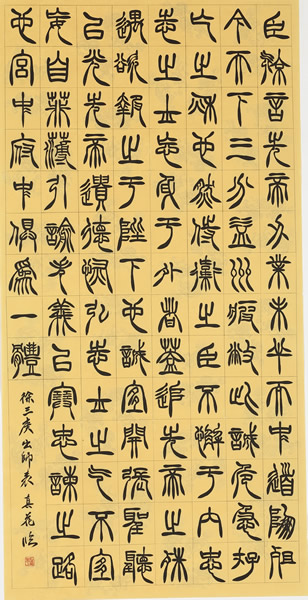 臣亮言先帝創業未半而中道崩殂
今天下三分益州疲敝此誠危急存
亡之秋也然侍衛之臣不懈于內忠
志之士忘身于外者蓋追先帝之殊
遇欲報之于陛下也誠宜開張聖聽
以光先帝遺德恢弘志士之气不宜
妄自菲薄引喻失義以塞忠諫之路
也宮中府中俱為一體
徐三庚出師表真花臨